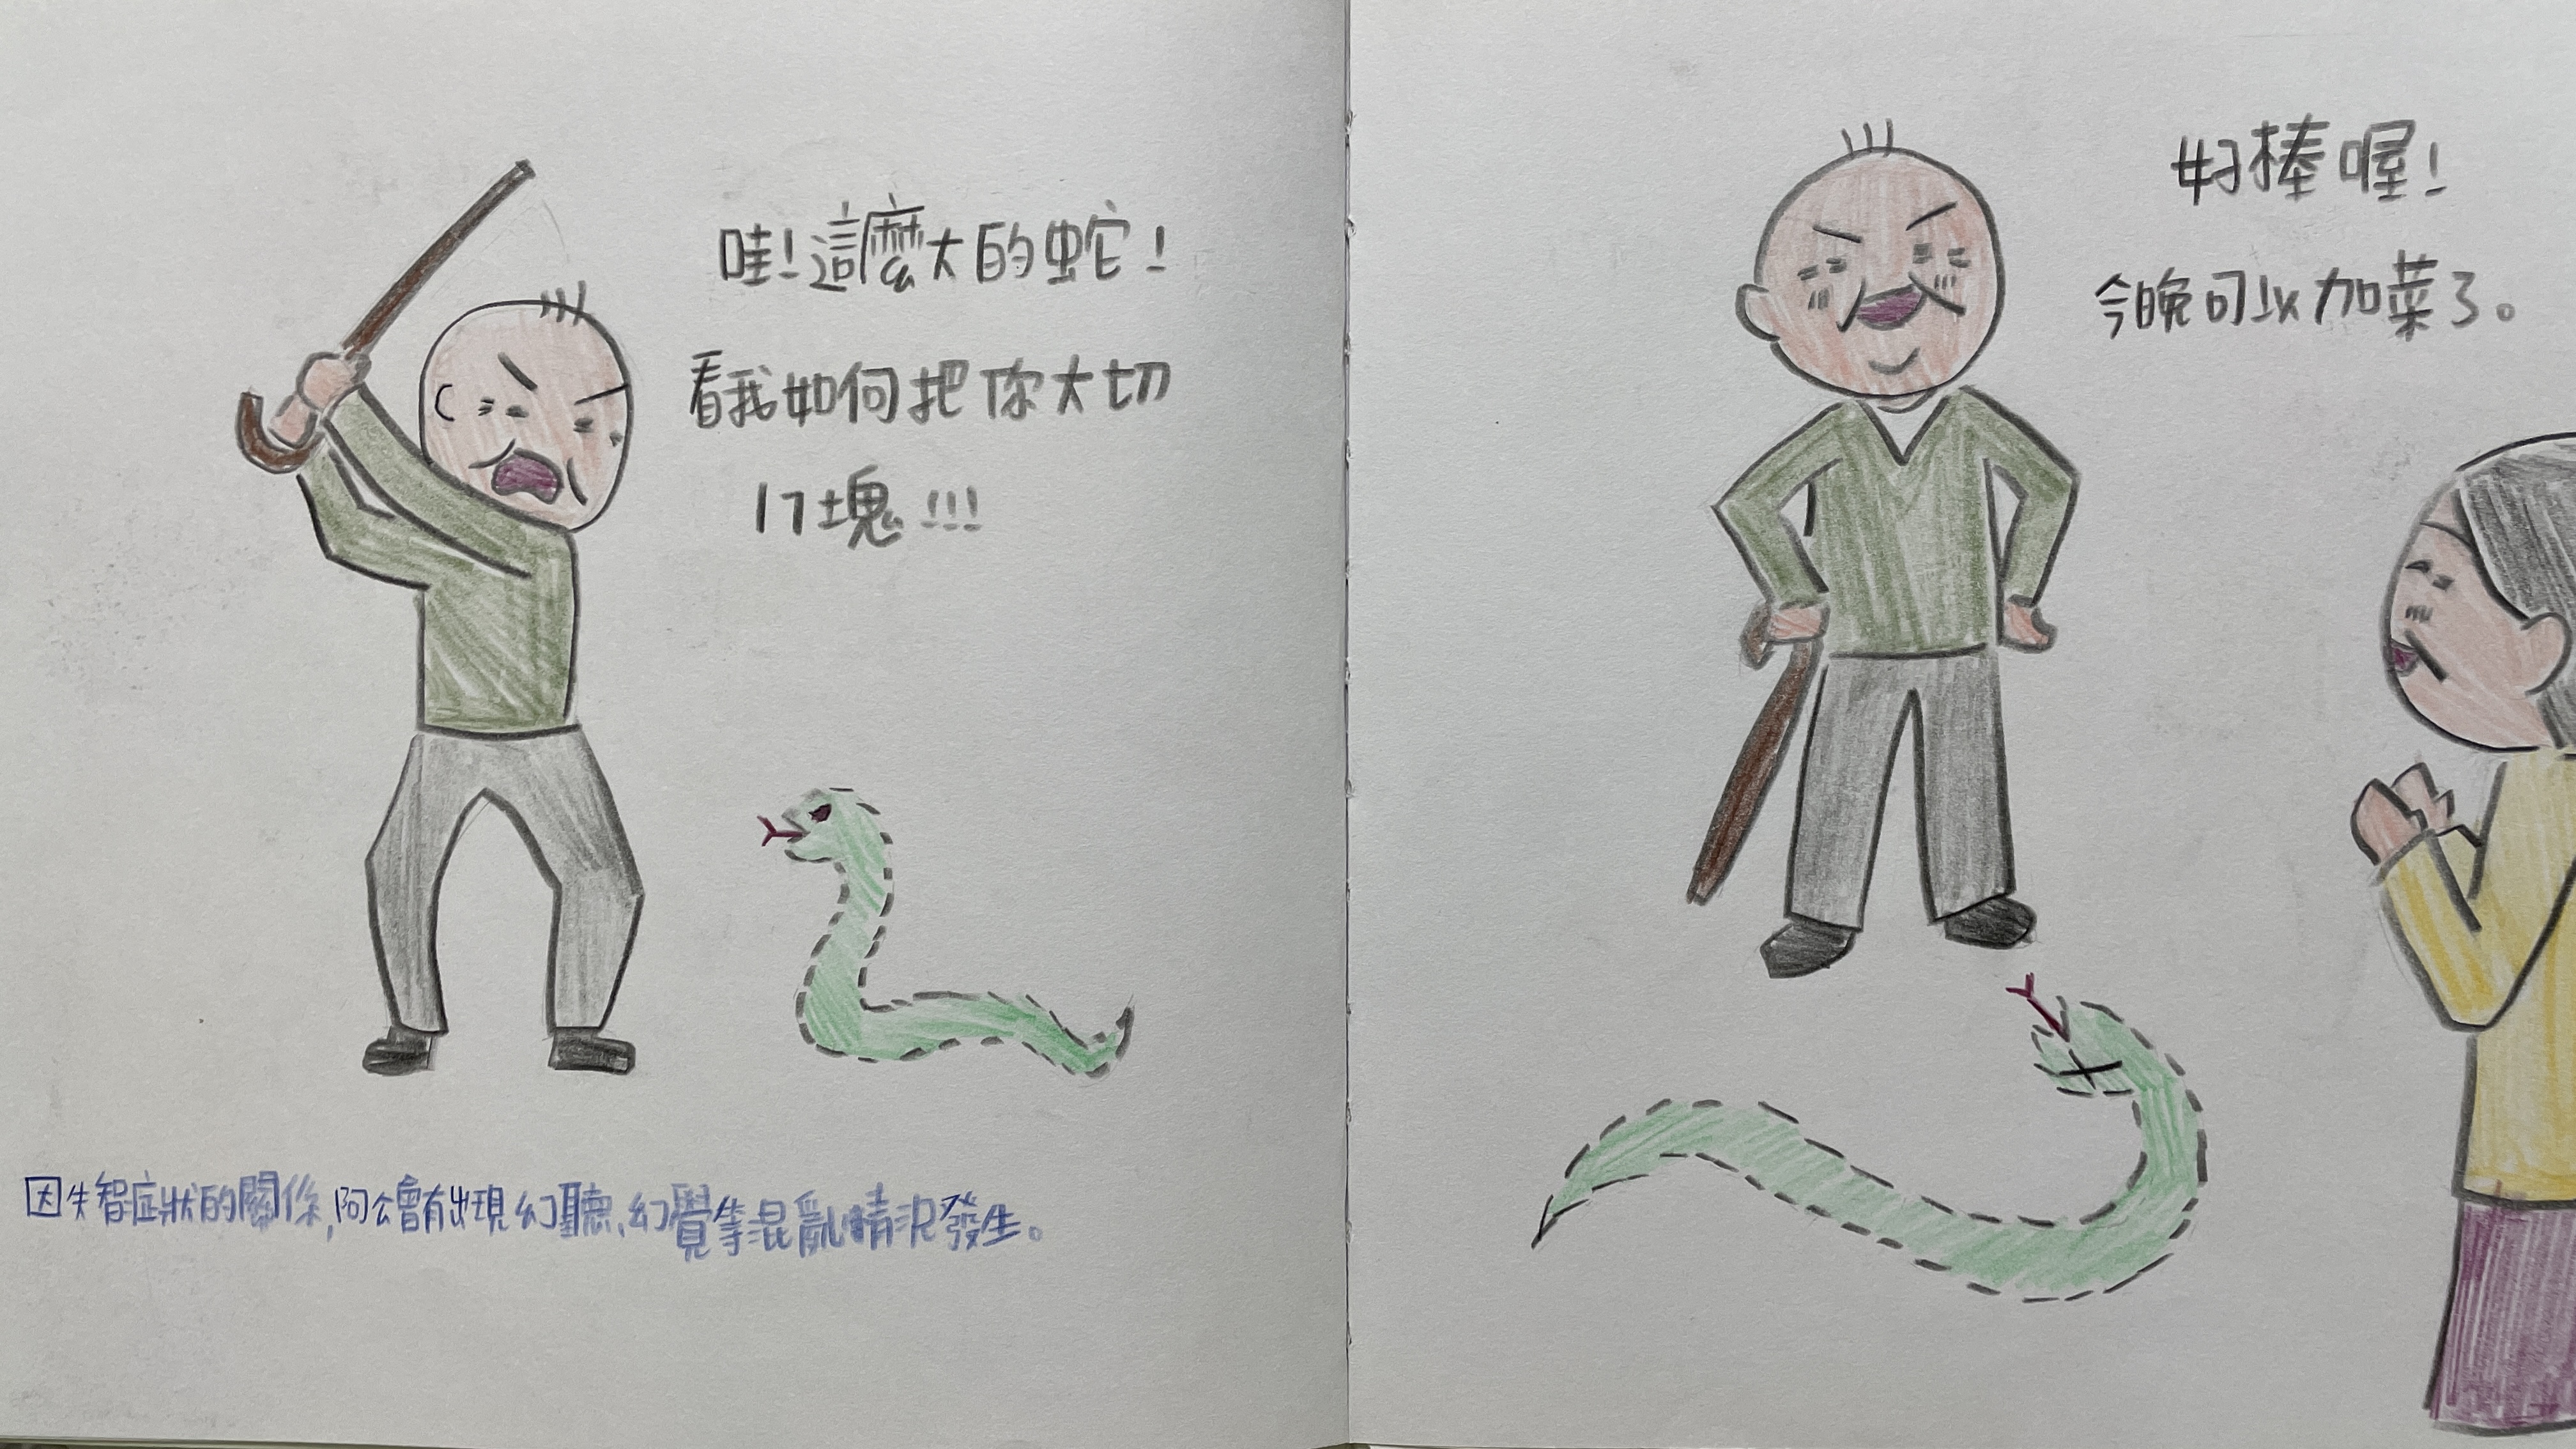 哇!這麼大的蛇!
看我如何把你大切
17塊!!!
因失智症狀的關係,阿公會有出現幻聽、幻覺等混亂情況發生。
好棒喔!
今晚可以加菜了。